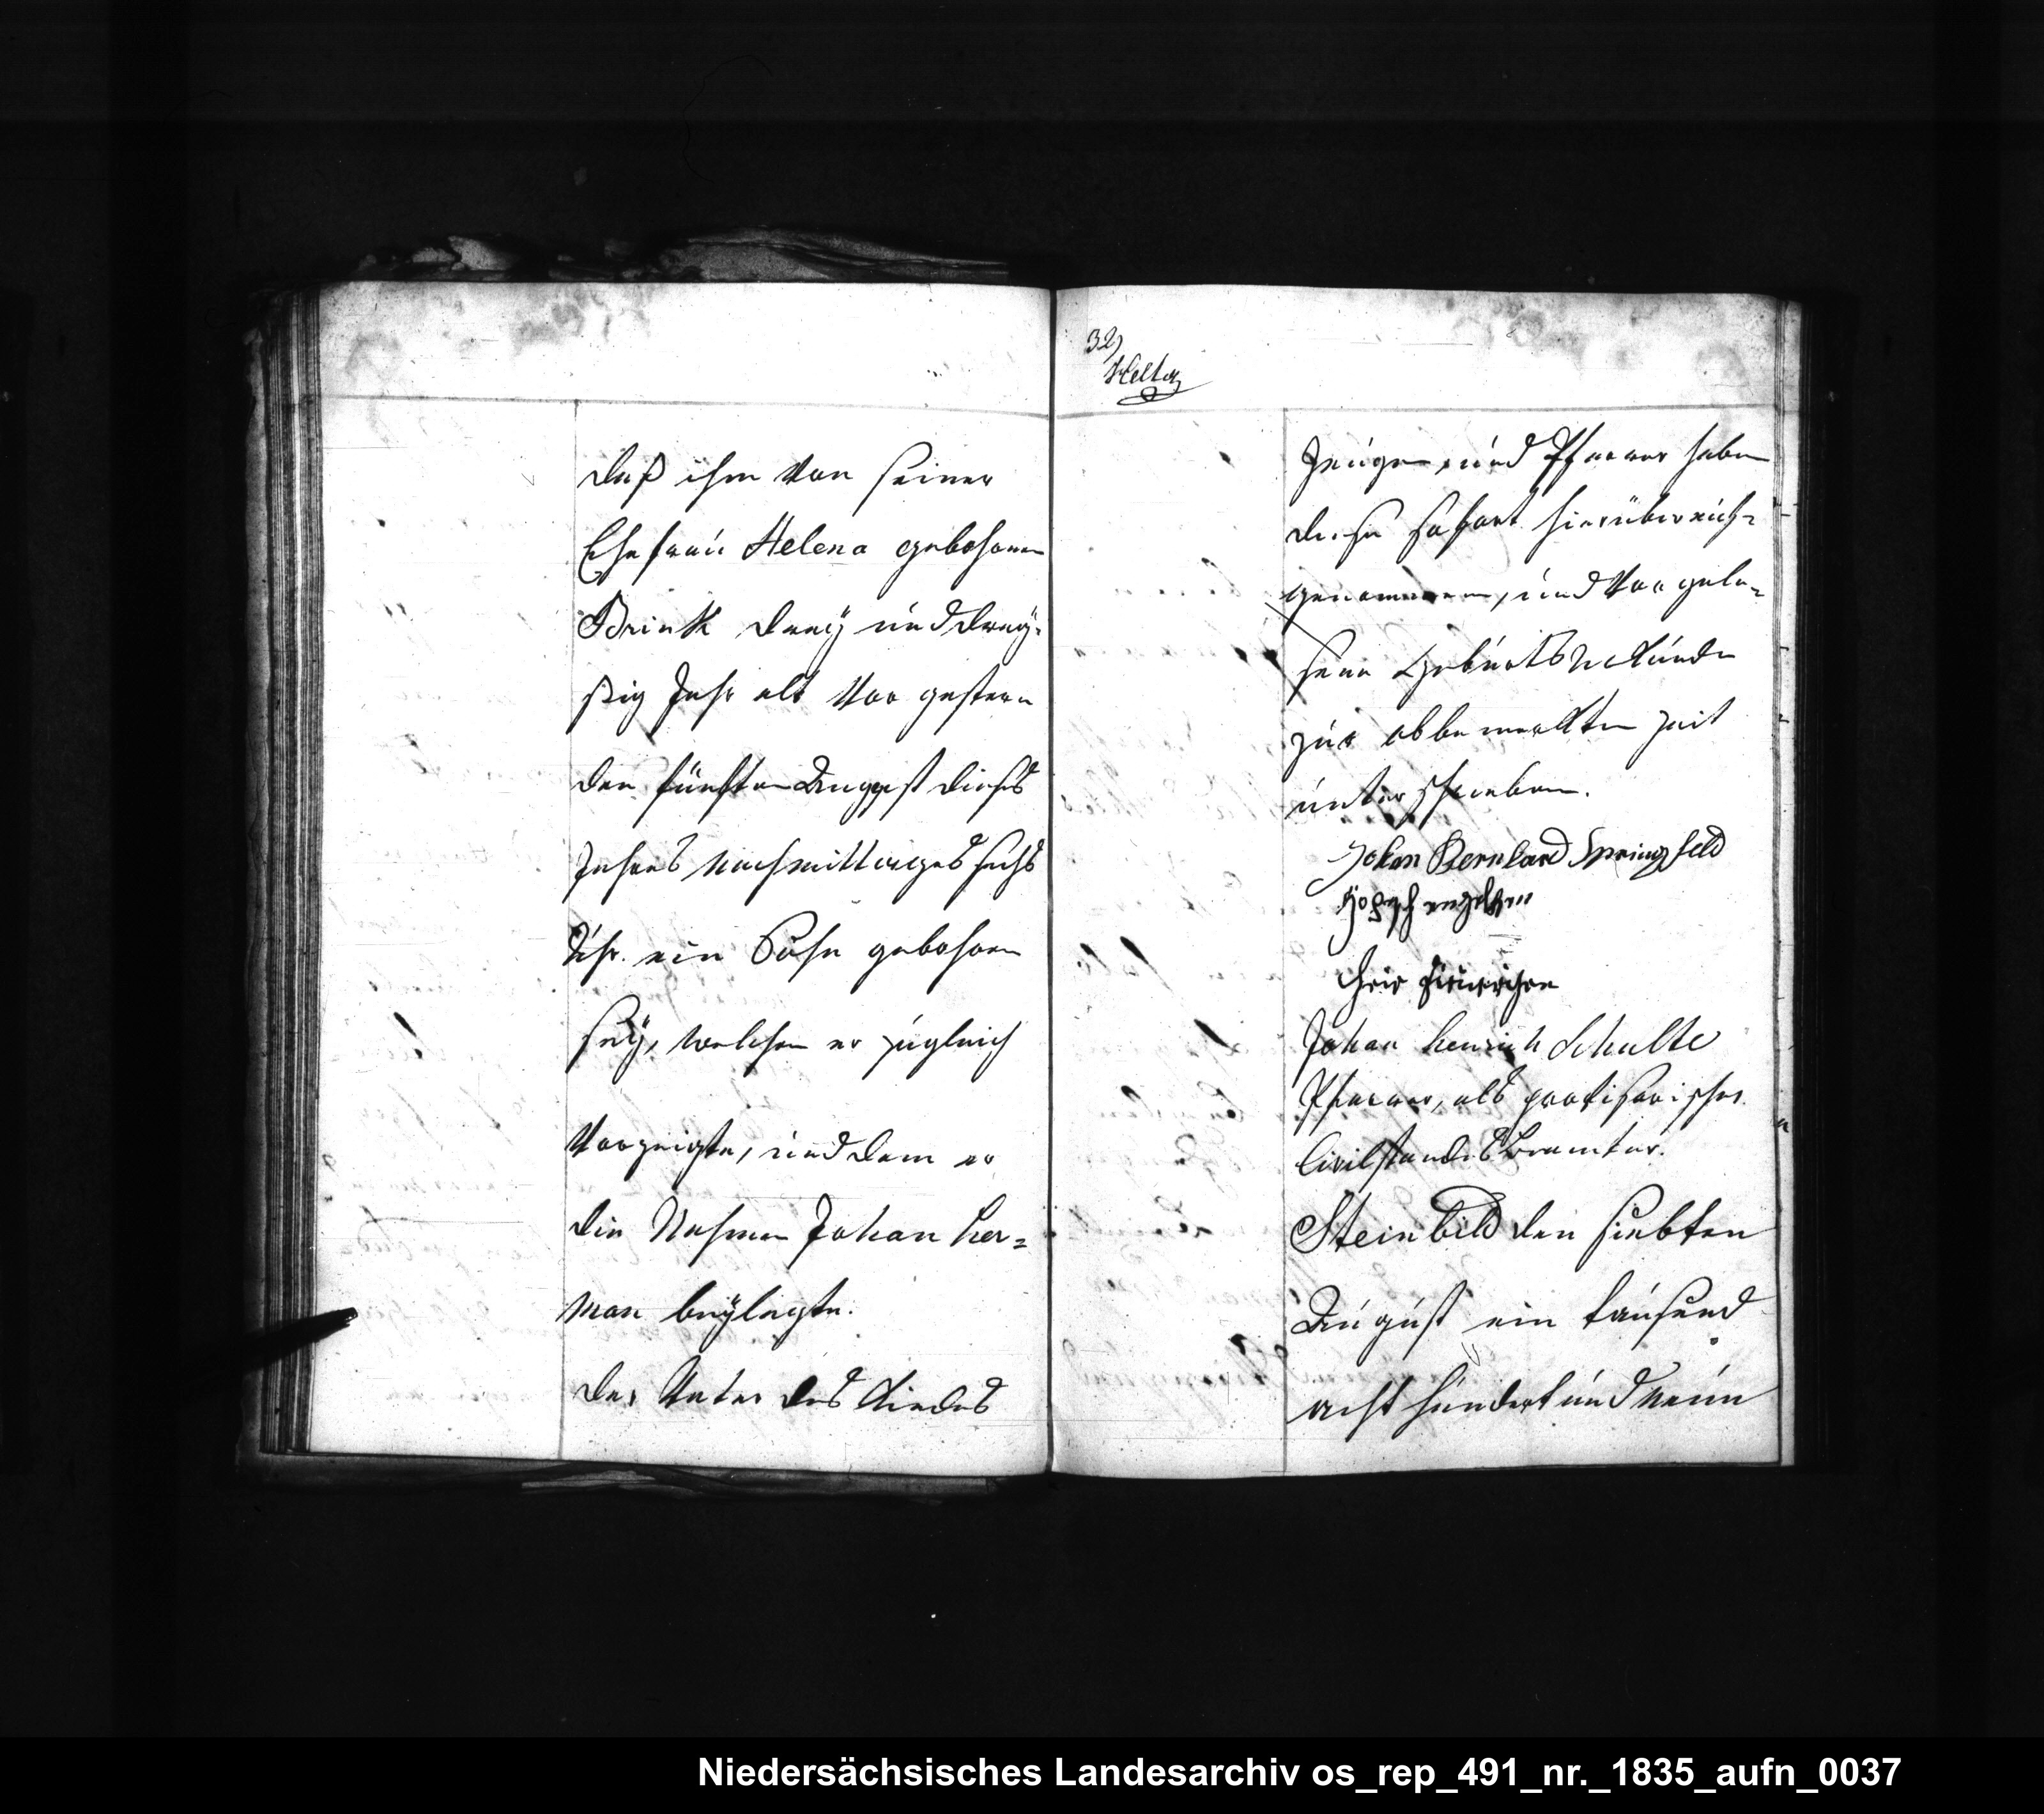 daß ihm von seiner
Ehefrau Helena gebohrnen
Brink drey und drey-
ßig Jahr alt vor gestern
den fünften August dieses
Jahres Nachmittages sechs
Uhr ein Sohn gebohren
sey, welchen er zugleich
vorzeigte, und dem er
die Nahmen Johan Her=
man beylegte.
Der Vater des Kindes
32)
Zeugen, und Pfarrer haben
diese sofort hierüber auf=
genommene, und vorgele=
sene Geburts Urkunde
zur obbemerkten Zeit
unterschrieben.
Johan Bernhard Springfeld
Johan Henrich Schulte
Pfarrer, als provisorischer
Civilstandes Beamter.
Steinbild den siebten
August ein tausend
acht hundert und neun
Niedersächsisches Landesarchiv os_rep_491_nr._1835_aufn_0037